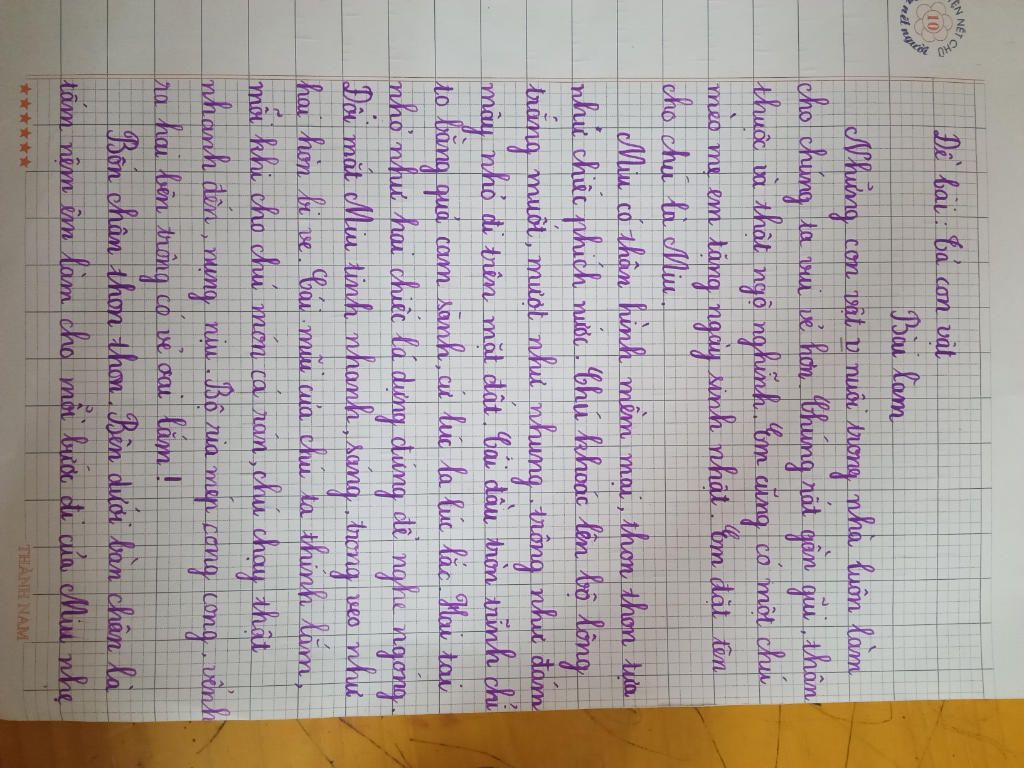 ỆN NÉT CHỮ
10
nết người
Đề bài: Tả con vật
Bài làm
Những con vật nuôi trong nhà luôn làm
cho chúng ta vui vẻ hơn. Chúng rất gần gũi, thân
thuộc và thật ngộ nghĩnh. Em cũng có một chú
mèo mẹ em tặng ngày sinh nhật. Em đặt tên
cho chú là Miu.
Miu có thân hình mềm mại, thon thon tựa
như chiếc phích nước. Chú khoác lên bộ lông
trắng muốt, mượt như nhung, trông như đám
mây nhỏ đi trên mặt đất. Cái đầu tròn trĩnh chỉ
to bằng quả cam sành, cứ lúc la lúc lắc. Hai tai
nhỏ như hai chiếc lá dựng đứng để nghe ngóng.
Đôi mắt Miu tinh nhanh, sáng, trong veo như
hai hòn bi ve. Cái mũi của chú ta thính lắm,
mỗi khi cho chú món cá rán, chú chạy thật
nhanh đến, nựng nịu. Bộ ria mép cong cong, vểnh
ra hai bên trông có vẻ oai lắm!
Bốn chân thon thon. Bên dưới bàn chân là
tấm nệm êm làm cho mỗi bước đi của Miu nhẹ
THÀNH NAM